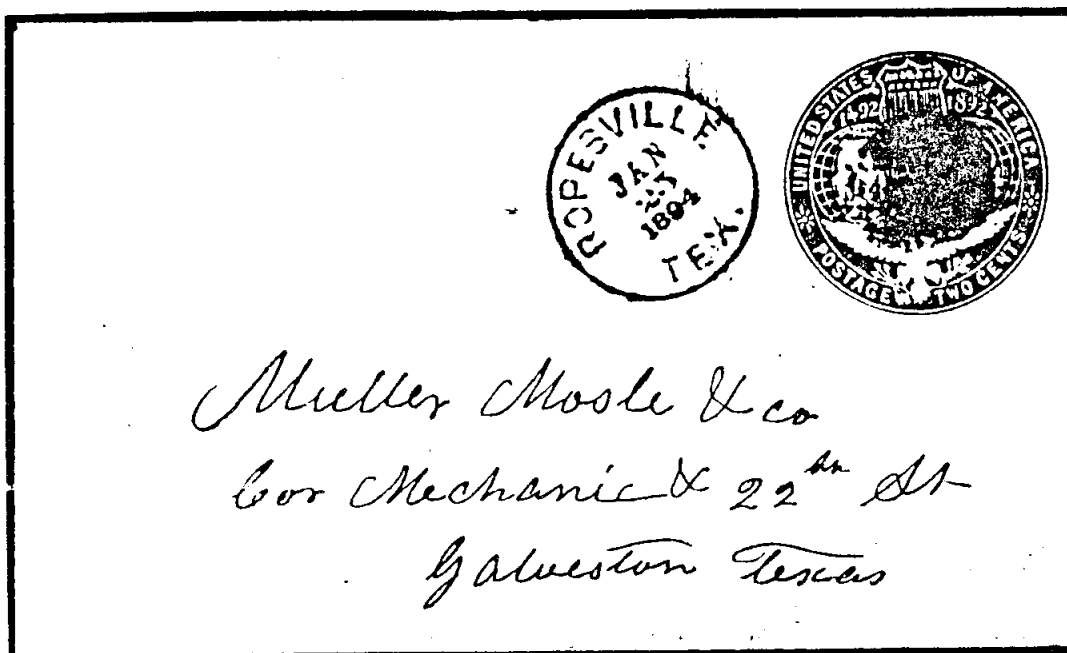 ROPESVILLE
JAN
1894
TEX.
UNITED STATES OF AMERICA
1492 1892
POSTAGE TWO CENTS
Muller Mosle & co
Cor Mechanic & 22 St
Galveston Texas